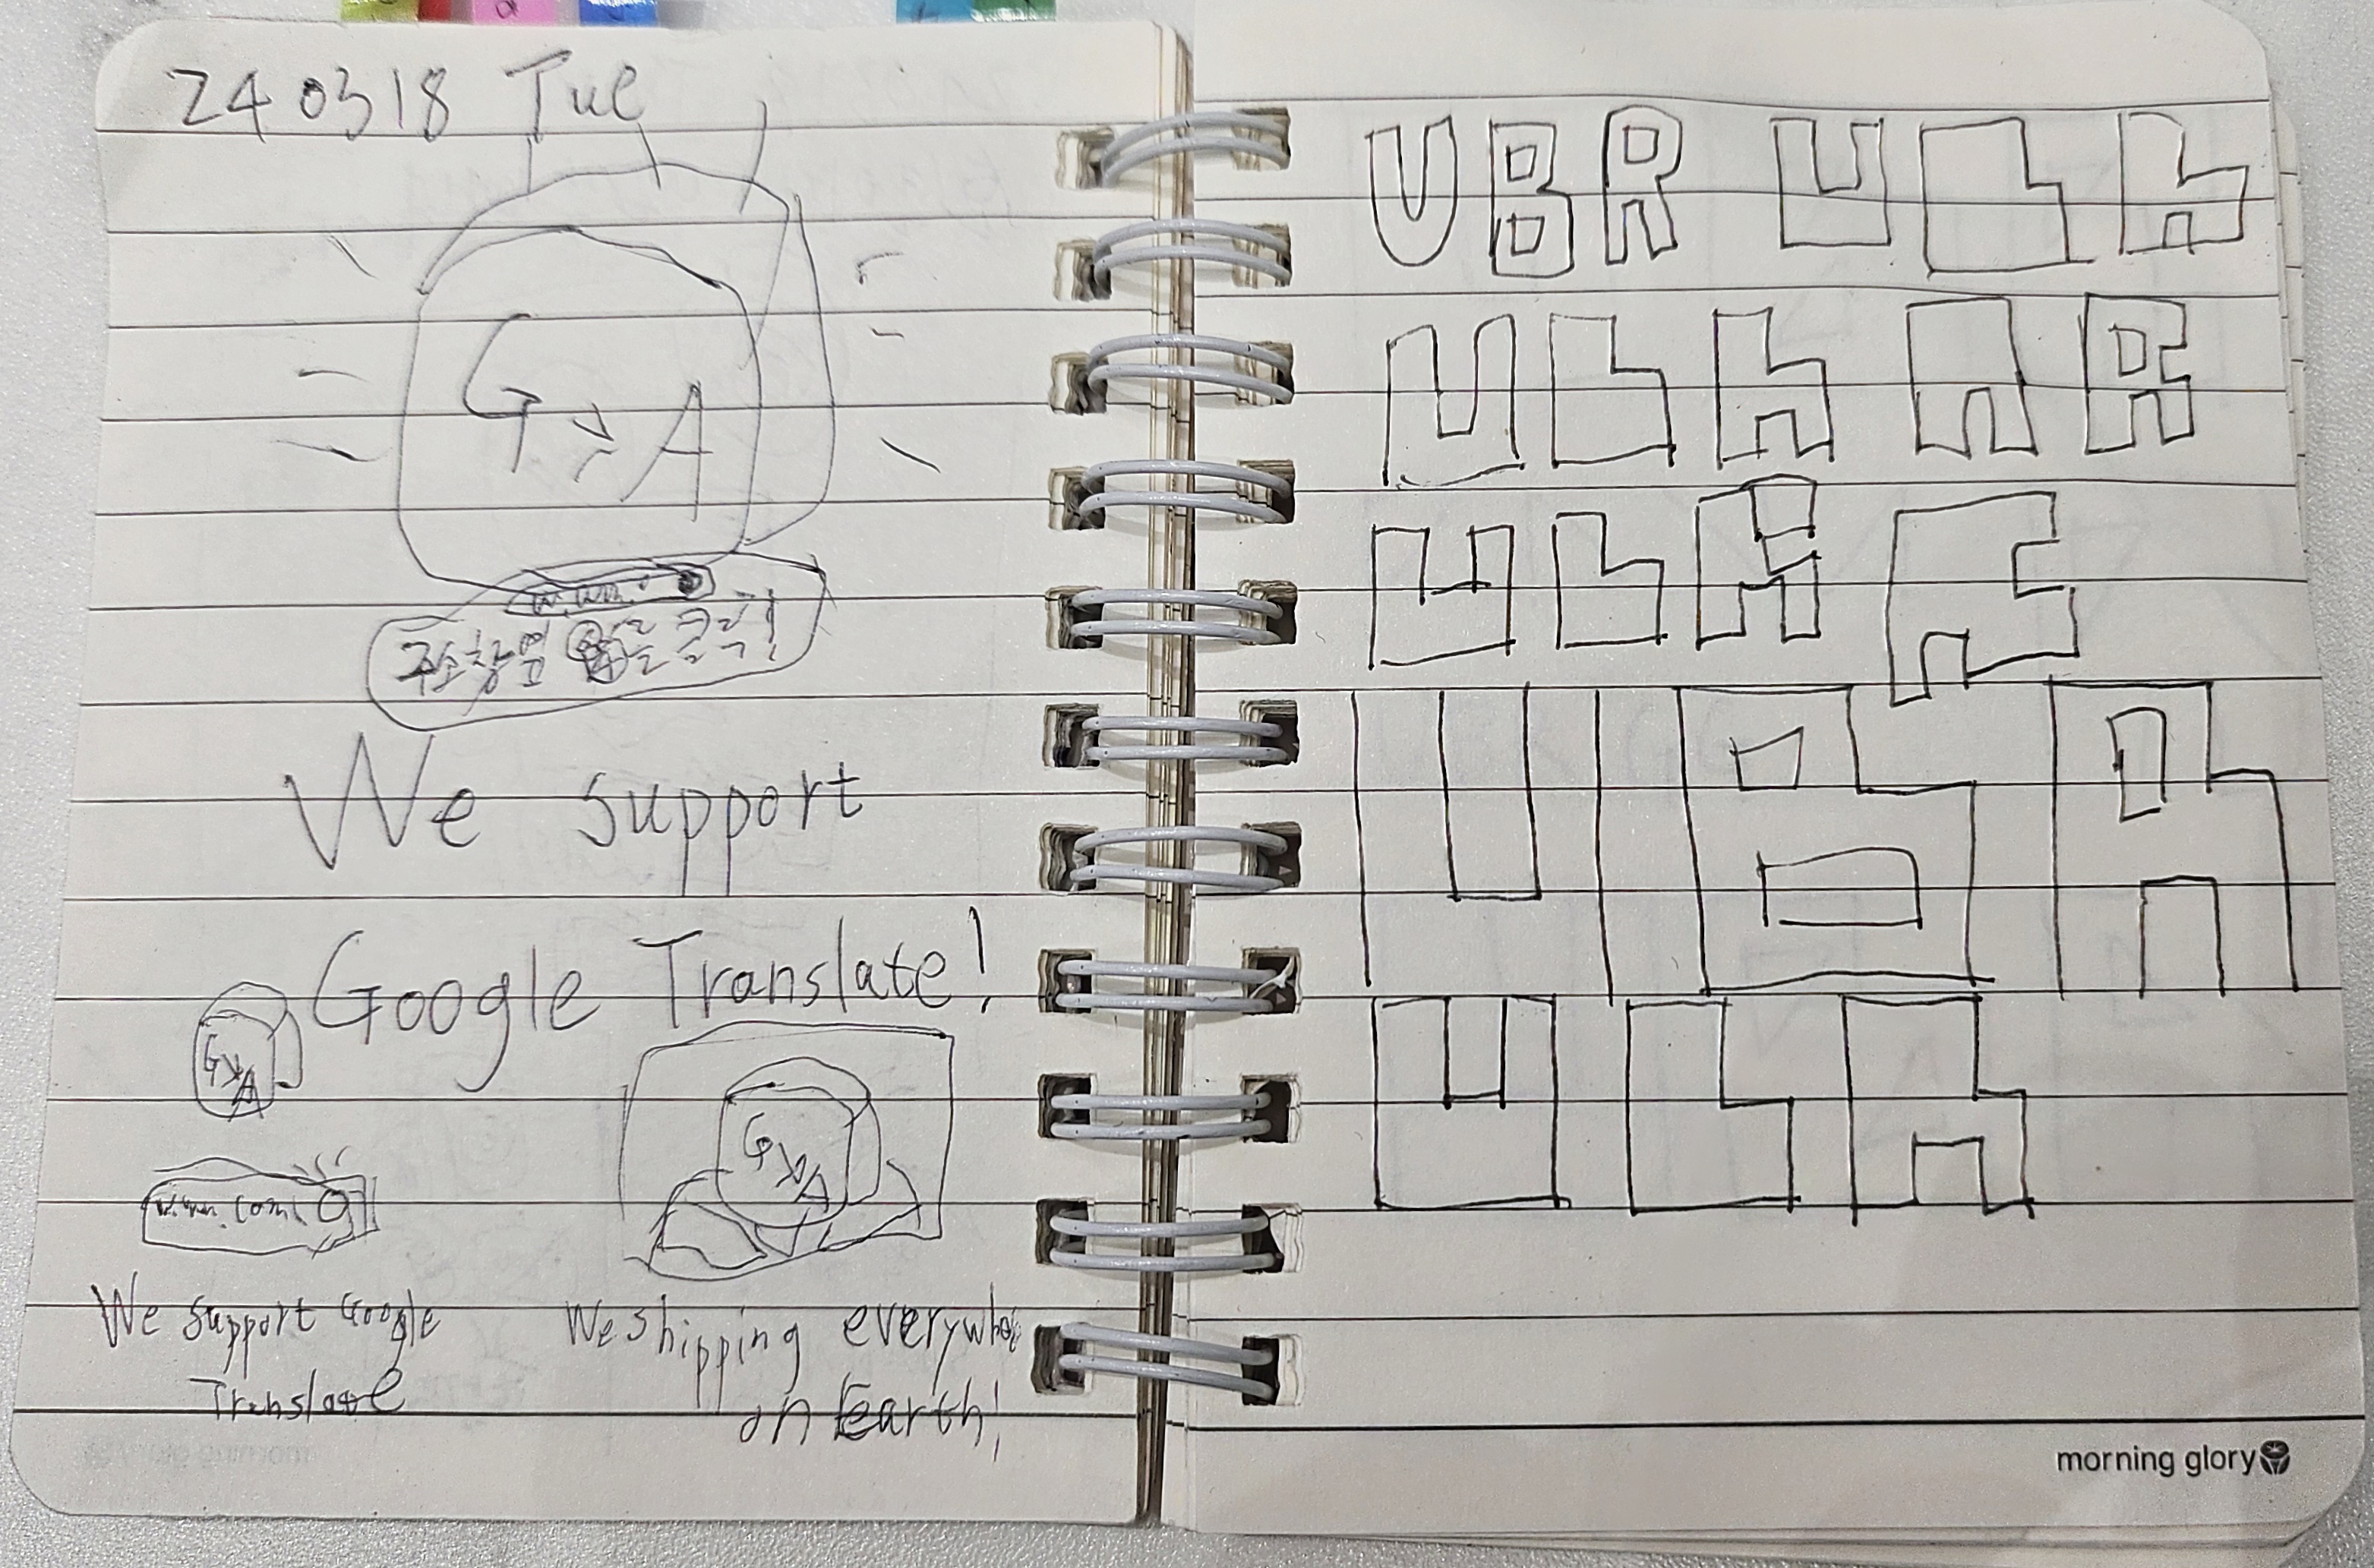 240318 Tue
G A
www.
주소창옆 를 클릭!
We support
Google Translate!
G A
G A
www.com
We support Google
Translate
We shipping everywhe
on Earth!
UBR
morning glory